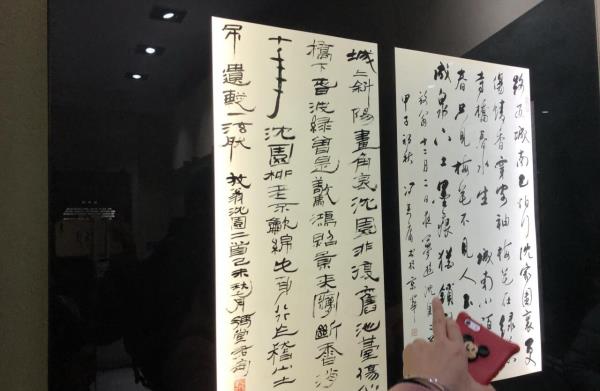 路近城南已怕行沈家園裏更
傷情香穿客袖梅花在綠
寺橋春水生 城南小陌
春只見梅花不見人
成泉下土墨痕猶鎖
放翁十二月二日夜夢遊沈園
甲子初秋 書於京華
城上斜陽畫角哀沈園非復舊池臺傷心
橋下春波綠曾是驚鴻照影來夢斷香消
十年 沈園柳老不吹綿此身行作稽山土
吊遺蹤一泫然 放翁沈園二首己未秋月